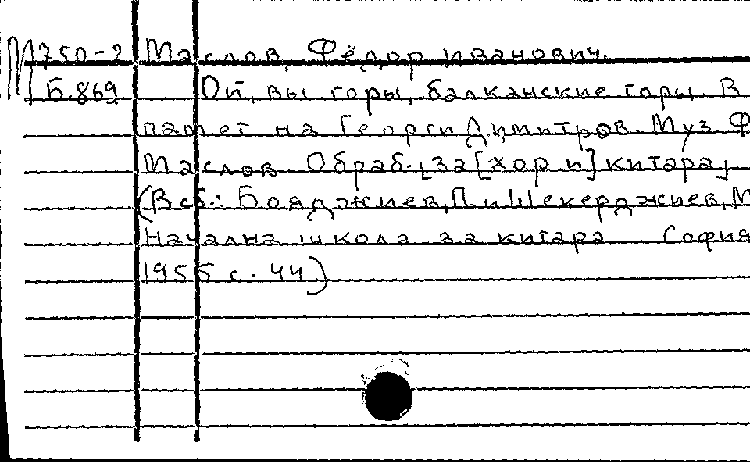 М750-2 Маслов, Фёдор Иванович.
Б.869 Ой, вы горы, балканские горы. В
памет на Георги Димитров. Муз. Ф
Маслов. Обраб. [за [хор и] китара]
(В сб.: Бояджиев, П. и Шекерджиев, М
Начална школа за китара София
1955 с. 44)